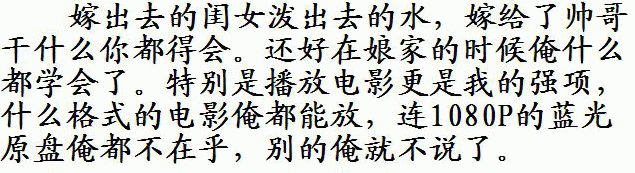 嫁出去的闺女泼出去的水，嫁给了帅哥
干什么你都得会。还好在娘家的时候俺什么
都学会了。特别是播放电影更是我的强项，
什么格式的电影俺都能放，连1080P的蓝光
原盘俺都不在乎，别的俺就不说了。